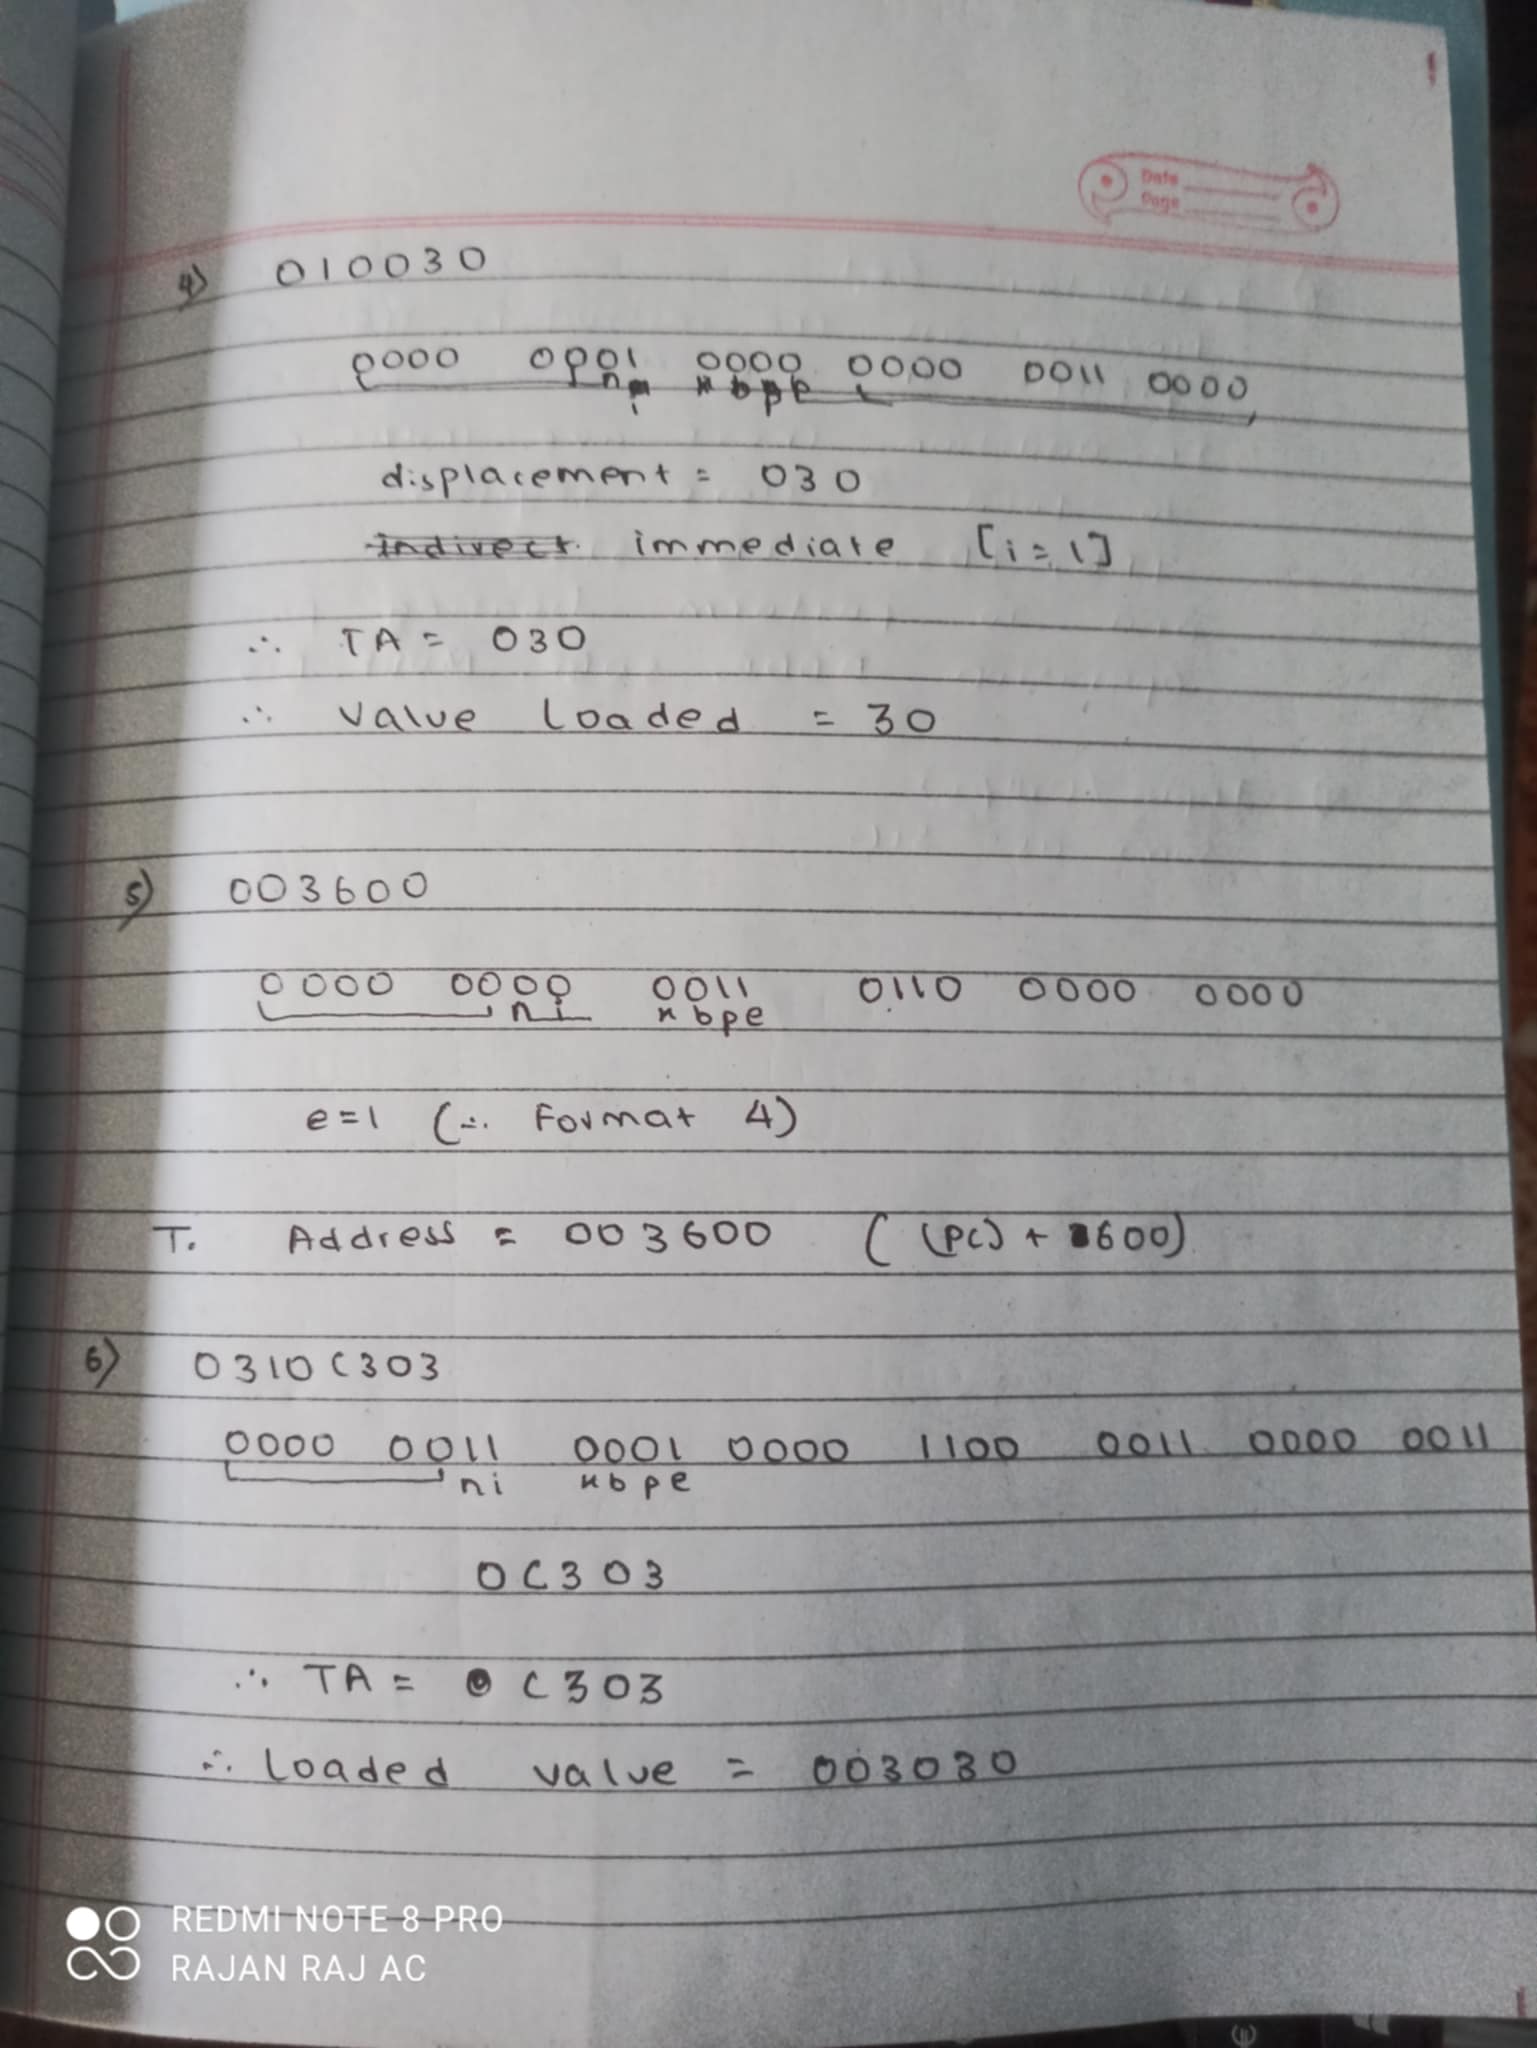 Date
Page
4) 010030
0000 0001 0000 0000 0011 0000
n i x b p e
displacement = 030
indirect. immediate [i=1]
∴ TA = 030
∴ value loaded = 30
5) 003600
0000 0000 0011 0110 0000 0000
n i x b p e
e=1 (∴ Format 4)
T. Address = 003600 ( (PC) + 600)
6) 0310C303
0000 0011 0001 0000 1100 0011 0000 0011
n i x b p e
0C303
∴ TA = 0C303
∴ Loaded value = 003030
REDMI NOTE 8 PRO
RAJAN RAJ AC